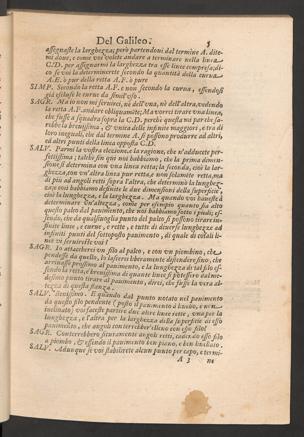 Del Galileo. 5
assegnaste la larghezza; però partendoui dal termine A. dite-
mi doue, e come voi volete andare a terminare nella linea
C.D. per assegnarmi la larghezza tra esse linee compresa; di-
co se voi la determinerete secondo la quantità della curua
A.E. ò pur della retta A.F. ò pure
SIMP. Secondo la retta A.F. e non secondo la curua, essendosi
già escluse le curue da simil'uso.
SAGR. Ma io non mi seruirei, nè dell'vna, nè dell'altra, vedendo
la retta A.F. andare obliquamente; Ma vorrei tirare vna linea,
che fusse à squadra sopra la C.D. perchè questa mi par che sa-
rebbe la breuissima, & vnica delle infinite maggiori, e tra di
loro ineguali, che dal termine A. si possono produrre ad altri,
ed altri punti della linea opposta C.D.
SALV. Parmi la vostra elezione, e la ragione, che n'adducete per-
fettissima; talchè sin quì noi habbiamo, che la prima dimen-
sione si determina con vna linea retta; la seconda, cioè la lar-
ghezza, con vn'altra linea pur retta, e non solamente retta, ma
di più ad angoli retti sopra l'altra, che determinò la lunghez-
za; e così habbiamo definite le due dimensioni della superficie,
cioè la lunghezza, e la larghezza. Ma quando voi haueste à
determinare vn'altezza, come per esempio quanto sia alto
questo palco dal pauimento, che noi habbiamo sotto i piedi; es-
sendo, che da qualsiuoglia punto del palco si possono tirare in-
finite linee, e curue, e rette, e tutte di diuerse lunghezze ad
infiniti punti del sottoposto pauimento, di quale di cotali li-
nee vi seruireste voi?
SAGR. Io attaccherei vn filo al palco, e con vn piombino, che
pendesse da quello, lo lascerei liberamente distendere sino, che
arriuasse prossimo al pauimento, e la lunghezza di tal filo es-
sendo la retta, e breuissima di quante linee si potessero dal me-
desimo punto tirare al pauimento, direi, che fusse la vera al-
tezza di questa stanza.
SALV. Benissimo. E quando dal punto notato nel pauimento
da questo filo pendente (posto il pauimento à liuello, e non in-
clinato) voi faceste partire due altre linee rette, vna per la
lunghezza, e l'altra per la larghezza della superficie di esso
pauimento, che angoli conterrebber'elleno con esso filo?
SAGR. Conterrebbero sicuramente angoli retti, cadendo esso filo
a piombo, & essendo il pauimento ben piano, e ben liuellato.
SALV. Adunque se voi stabilirete alcun punto per capo, e termi-
A 3 ne